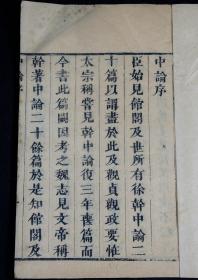 中論序
臣始見館閣及世所有徐幹中論二
十篇以謂盡於此及觀貞觀政要惟
太宗稱嘗見幹中論復三年喪篇而
今書此篇闕因考之魏志見文帝稱
幹著中論二十餘篇於是知館閣及
中論序